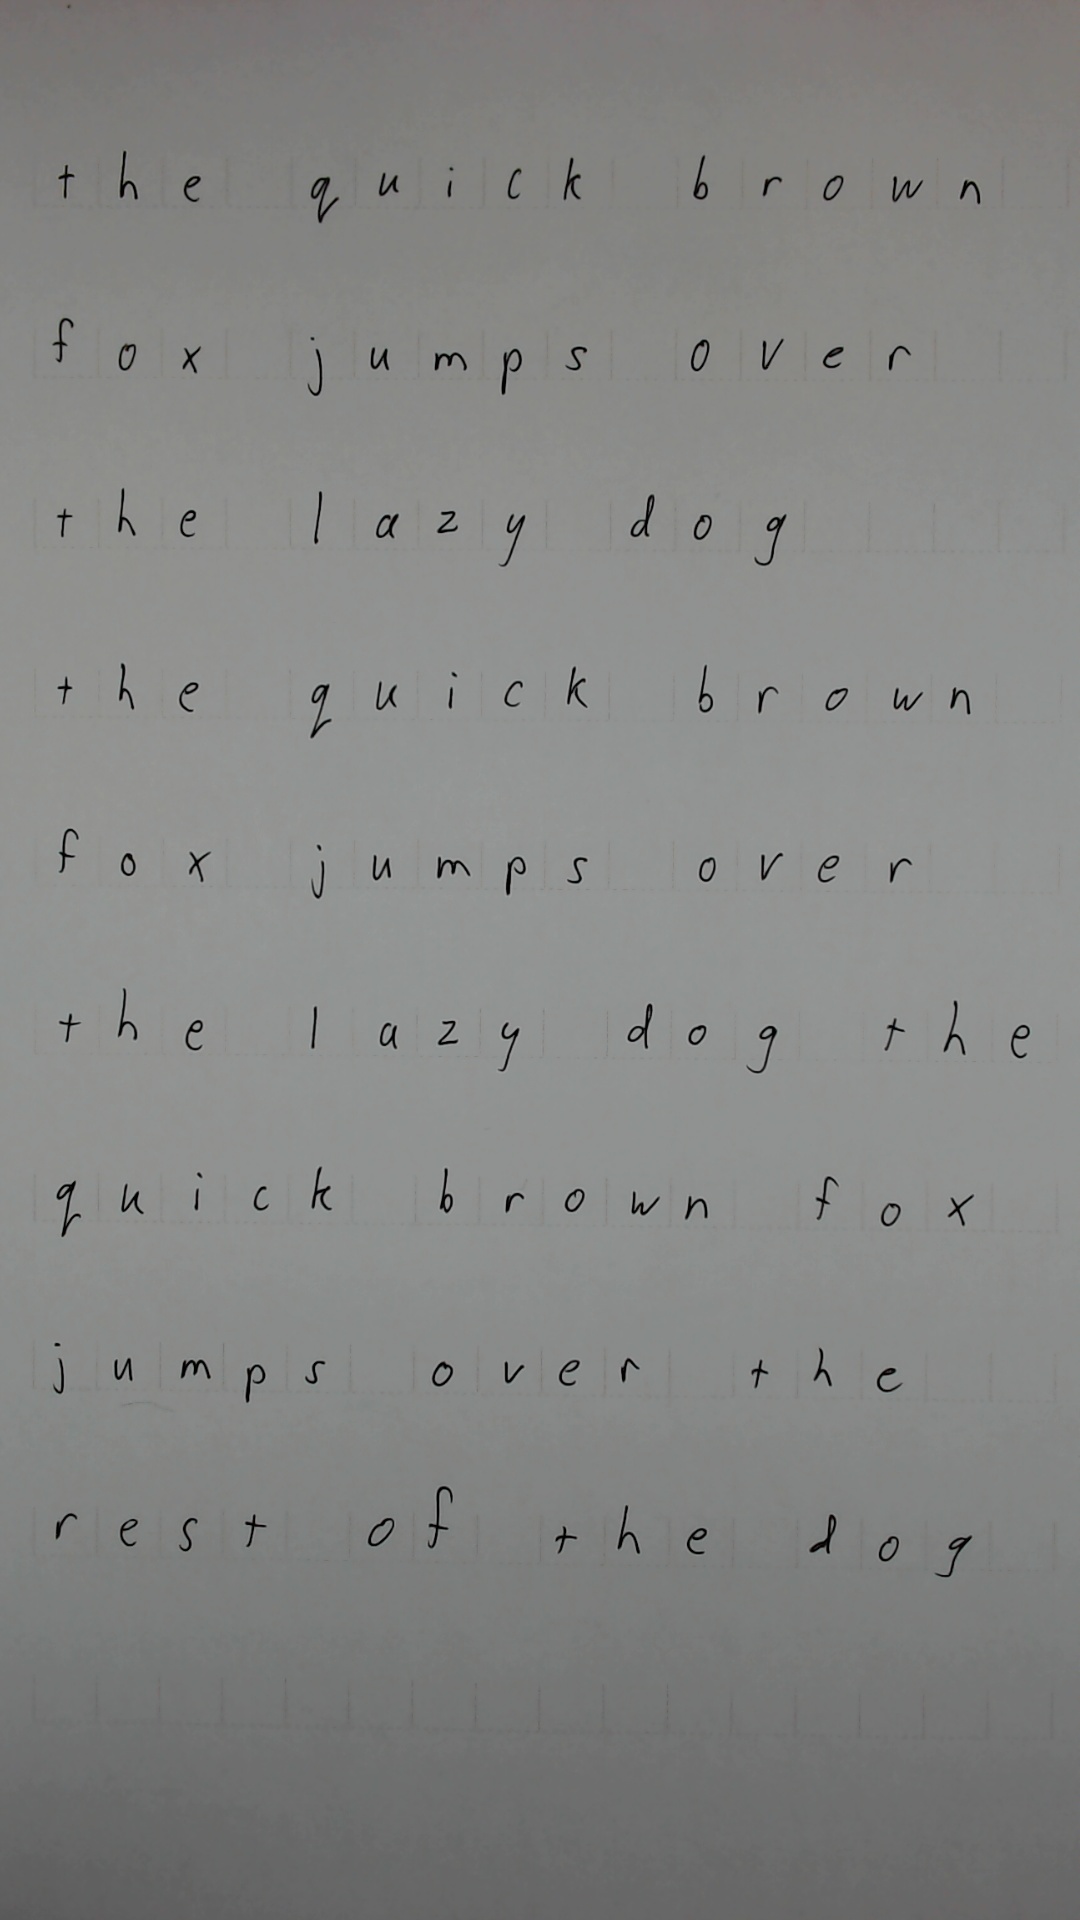 the quick brown
fox jumps over
the lazy dog
the quick brown
fox jumps over
the lazy dog the
quick brown fox
jumps over the
rest of the dog